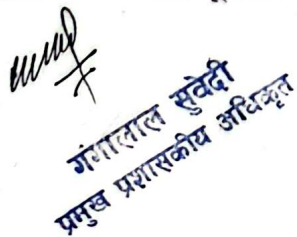 गंगालाल सुवेदी
प्रमुख प्रशासकीय अधिकृत